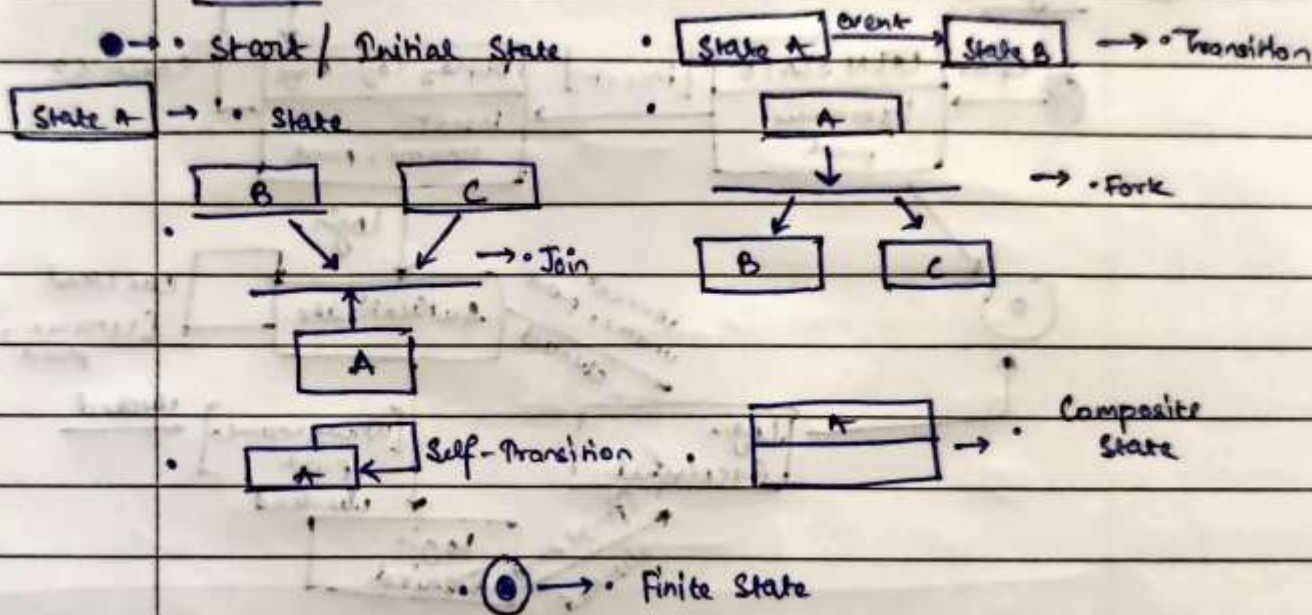 • Start / Initial State
• State A event State B → • Transition
State A → • State
• A
B C
→ • Fork
• → • Join
B C
A
• A Self-Transition
• A → • Composite
State
• → • Finite State